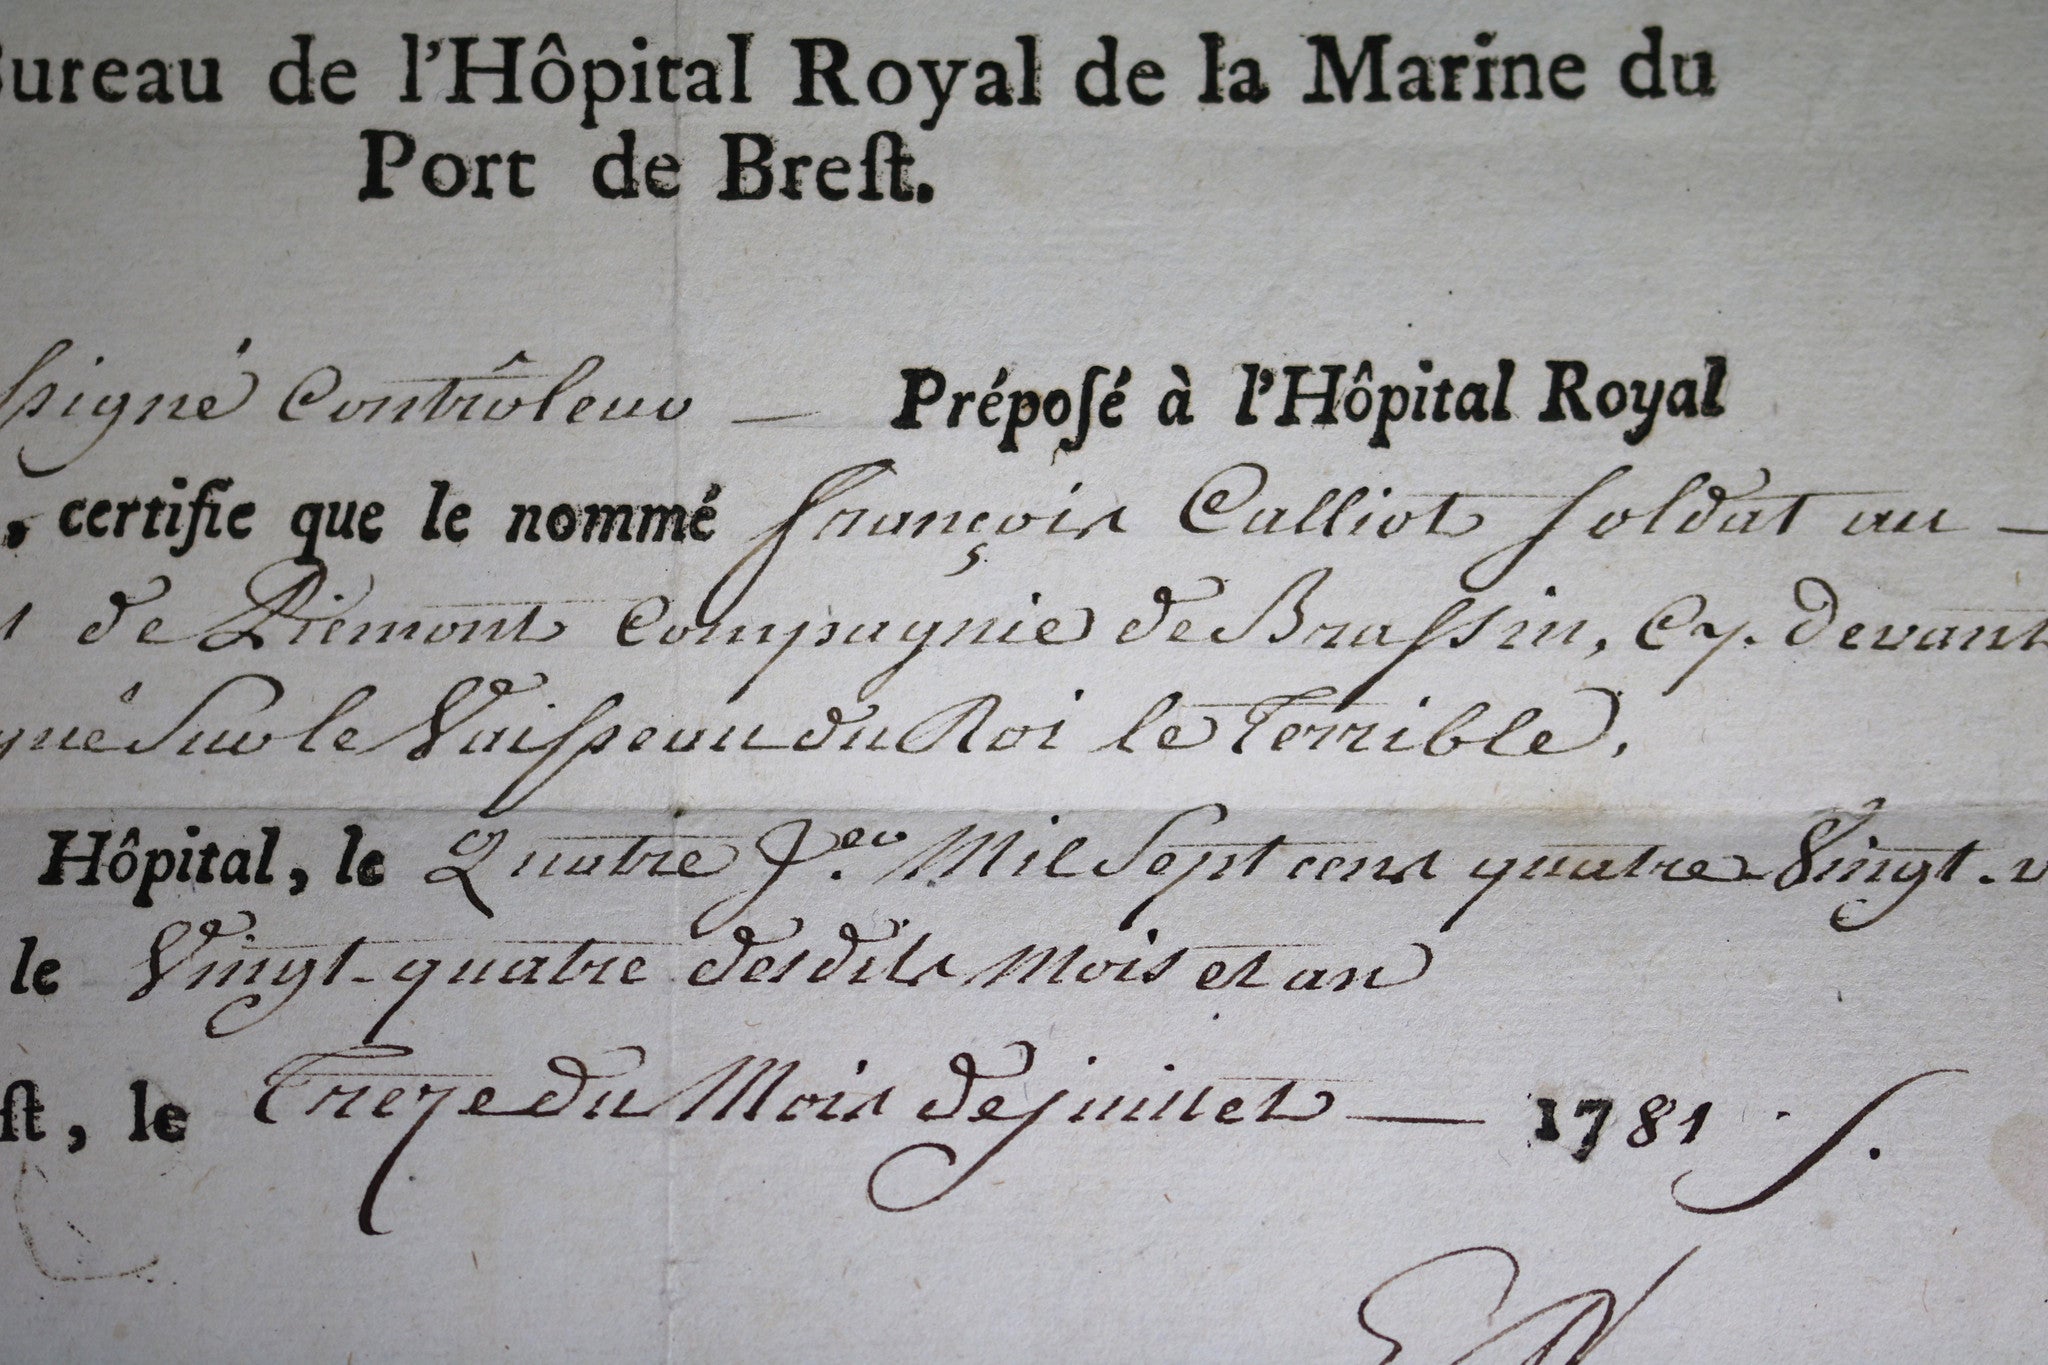 Bureau de l'Hôpital Royal de la Marine du
Port de Breſt.
ſsigné Contrôleur — Prépoſé à l'Hôpital Royal
, certifie que le nommé François Calliot soldat au —
t de Piemont Compagnie de Braſsin, Cy. devant
qué Sur le Vaiſseau du Roi le Terrible.
Hôpital, le Quatre J.er Mil Sept cent quatre Vingt. v
le Vingt-quatre desdits mois et an
ſt, le Treze du Mois de juillet — 1781 .